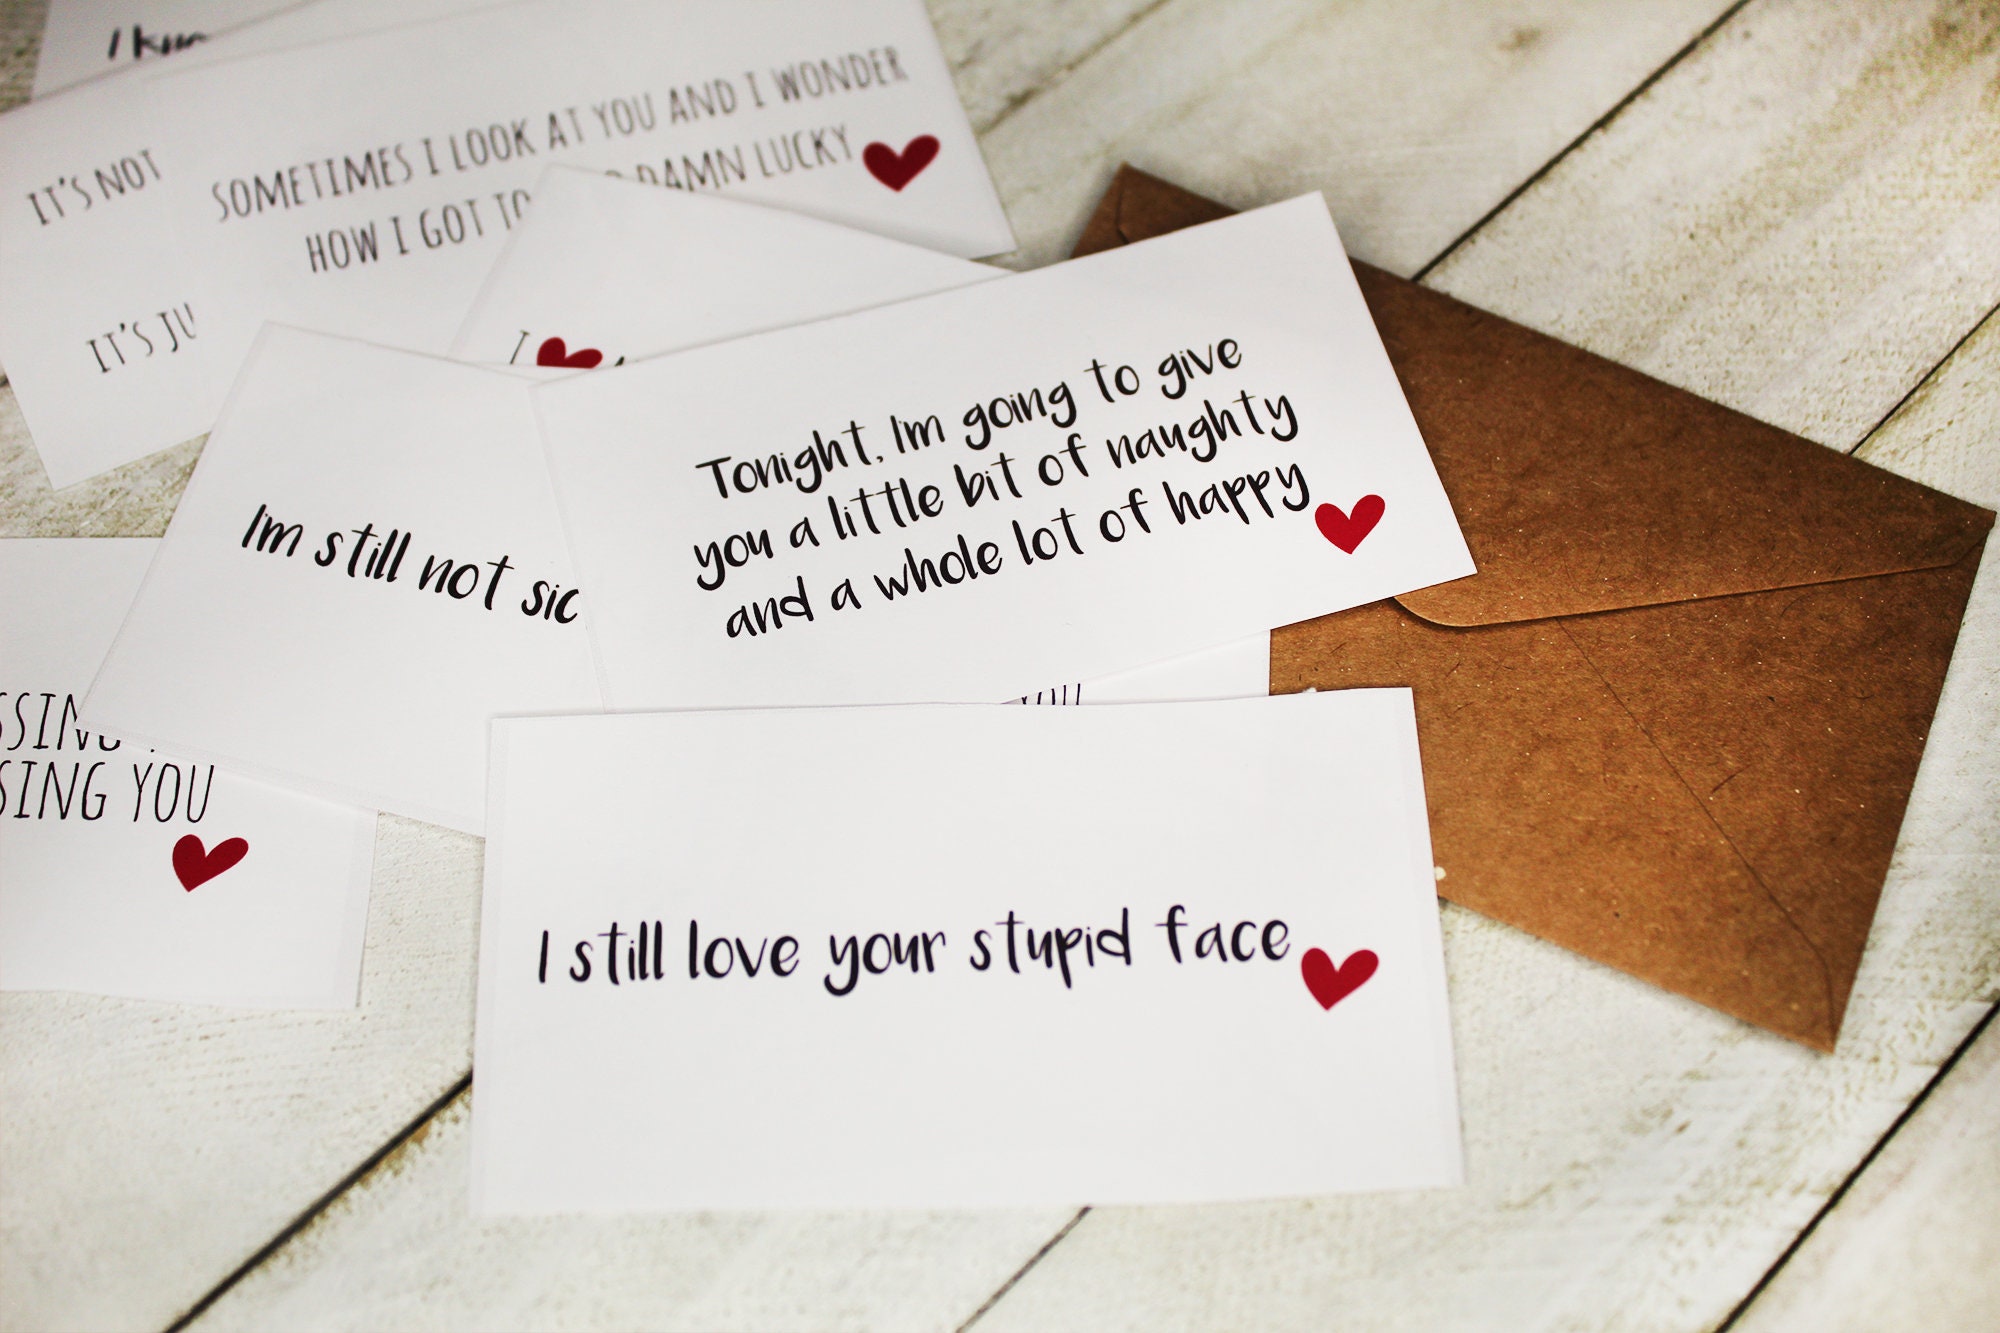 I
SOMETIMES I LOOK AT YOU AND I WONDER
HOW I GOT DAMN LUCKY
IT'S NOT
IT'S
I
Tonight, I'm going to give
you a little bit of naughty
and a whole lot of happy
I'm still not
SING YOU
I still love your stupid face